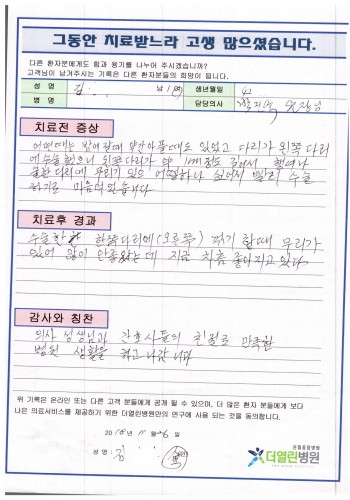 그동안 치료받느라 고생 많으셨습니다.
다른 환자분에게도 힘과 용기를 나누어 주시겠습니까?
고객님이 남겨주시는 기록은 다른 환자분들의 희망이 됩니다.
성 명 김 남 생년월일 42
병 명 담당의사 원장님
치료전 증상
어떤때는 밤에 잘때 무릎 아플때도 있었고 다리가 왼쪽 다리
에 수술했으니 왼쪽 다리가 약 1cm정도 길어서 행여나
다리에 무리가 있을 싶어서 빨리 수술
하기로 마음 먹었습니다
치료후 경과
수술한 한쪽다리에 (오른쪽) 걷기 할때 무리가
있어 많이 안좋았는데 지금 차츰 좋아지고 있다
감사와 칭찬
의사 선생님과 간호사들의 친절로 만족한
병원 생활을 하고 나갑니다
위 기록은 온라인 또는 다른 고객 분들에게 공개 될 수 있으며, 더 많은 환자 분들에게 보다
나은 의료서비스를 제공하기 위한 더열린병원만의 연구에 사용 되는 것을 동의합니다.
2018년 11월 26일
성 명 : 김
관절중점병원
더열린병원